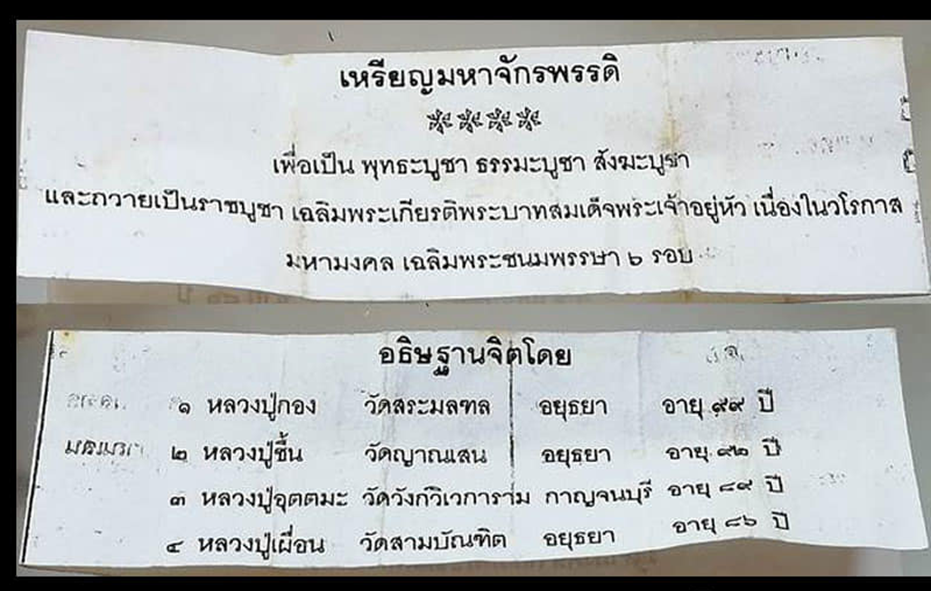 เหรียญมหาจักรพรรดิ
เพื่อเป็น พุทธะบูชา ธรรมะบูชา สังฆะบูชา
และถวายเป็นราชบูชา เฉลิมพระเกียรติพระบาทสมเด็จพระเจ้าอยู่หัว เนื่องในวโรกาส
มหามงคล เฉลิมพระชนมพรรษา ๖ รอบ
อธิษฐานจิตโดย
๑ หลวงปู่กอง วัดสระมลฑล อยุธยา อายุ ๙๙ ปี
๒ หลวงปู่ชื้น วัดญาณเสน อยุธยา อายุ ๙๒ ปี
๓ หลวงปู่อุตตมะ วัดวังก์วิเวการาม กาญจนบุรี อายุ ๘๙ ปี
๔ หลวงปู่เผื่อน วัดสามบัณฑิต อยุธยา อายุ ๘๖ ปี